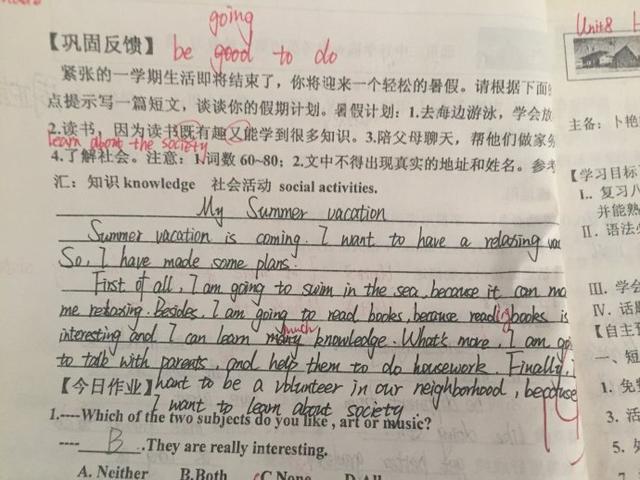 going
【巩固反馈】 be good to do
紧张的一学期生活即将结束了，你将迎来一个轻松的暑假。请根据下面
点提示写一篇短文，谈谈你的假期计划。暑假计划：1.去海边游泳，学会放
2.读书，因为读书既有趣又能学到很多知识。3.陪父母聊天，帮他们做家务
learn about the society
4.了解社会。注意：1.词数 60~80；2.文中不得出现真实的地址和姓名。参考
汇：知识 knowledge 社会活动 social activities.
My Summer vacation
Summer vacation is coming. I want to have a relaxing va
So, I have made some plans.
First of all, I am going to swim in the sea, because it can ma
me relaxing. Besides, I am going to read books, because reading books is
much
interesting and I can learn many knowledge. What's more, I am go
to talk with parents, and help them to do housework. Finally, I
【今日作业】 want to be a volunteer in our neighborhood, because
I want to learn about society.
1.----Which of the two subjects do you like , art or music?
---- B .They are really interesting.
A. Neither B.Both C.None D.All
Unit8
主备：卜艳
【学习目标
I.. 复习八
并能熟
II. 语法
III. 学会
IV. 话题
【自主
一、短
1. 免
3. 活
5. 外
7.